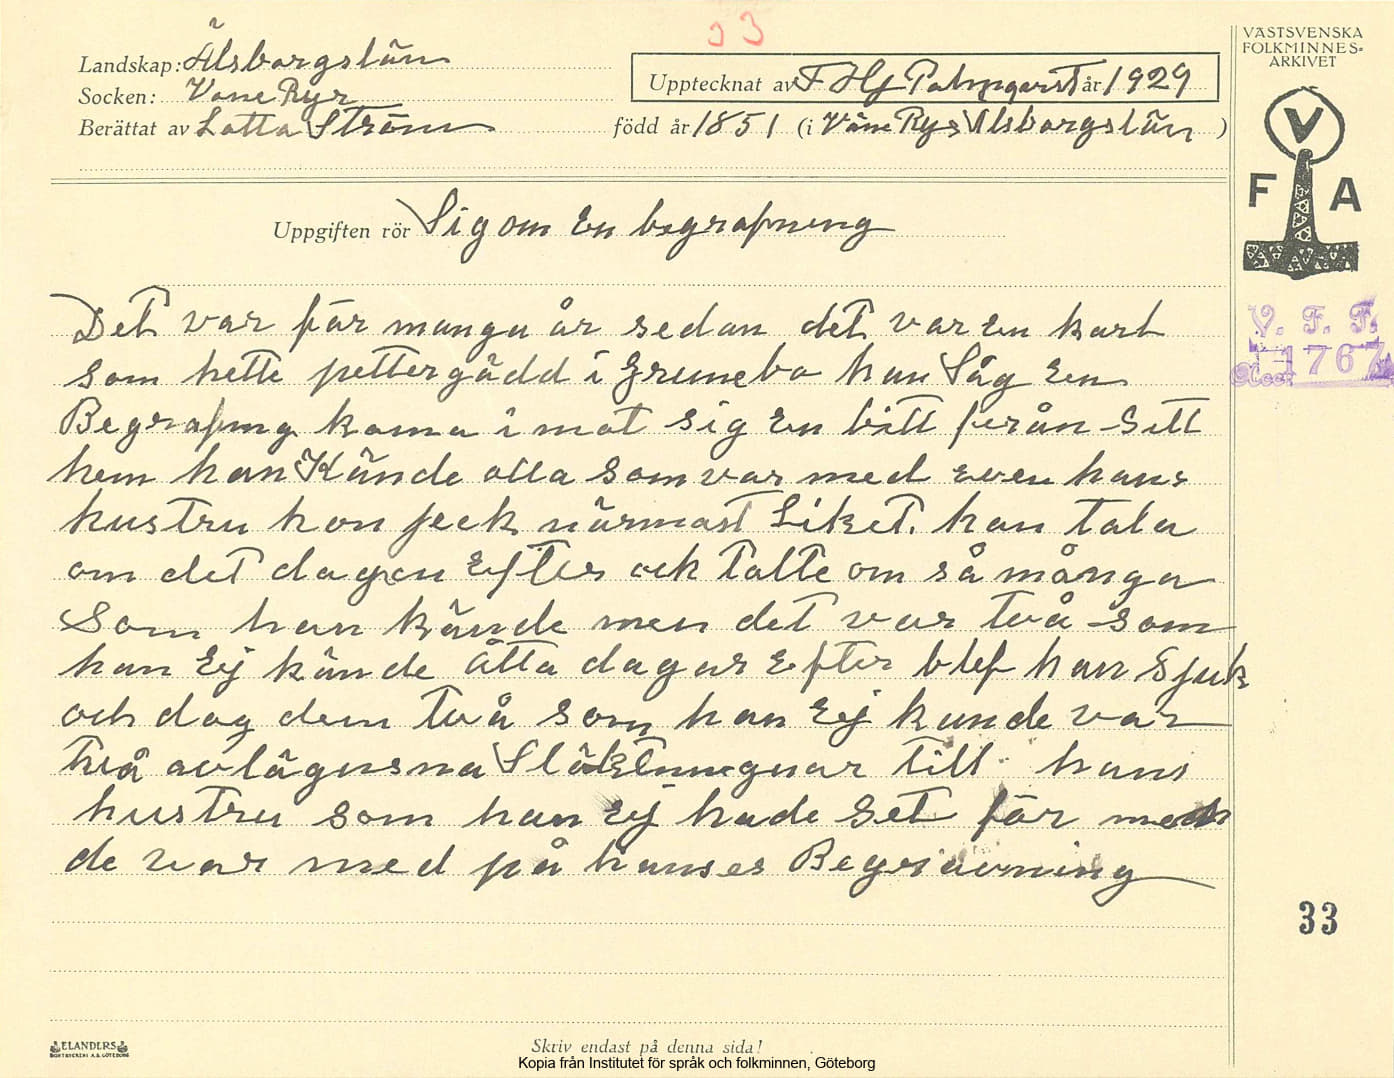 33
Landskap: Älsborgslän
Socken: Vane Ryr
Berättat av Lotta Ström
Upptecknat av F Hj Palmqvist år 1929
född år 1851 (i Väne Ryr Älsborgslän)
Uppgiften rör Sig om En begrafning
Det var för många år sedan det var en karl
som hette pettergädd i Grunebo han Såg en
Begrafning koma i mot sig En bitt från Sitt
hem han Kände alla som var med even hans
hustru hon jeck närmast Liket. han tala
om det dagen Efter och talte om så många
Som han kände men det var två som
han Ej kände åtta dagar Efter blef han Sjuk
och dog dem två som han Ej kunde var
två avlägsna Släktningar till hans
hustru som han Ej hade Set för men
de var med på hanses Begravning
VÄSTSVENSKA
FOLKMINNES-
ARKIVET
V
F A
V. F. F.
1767
33
ELANDERS
BOKTRYCKERI A.B. GÖTEBORG
Skriv endast på denna sida!
Kopia från Institutet för språk och folkminnen, Göteborg